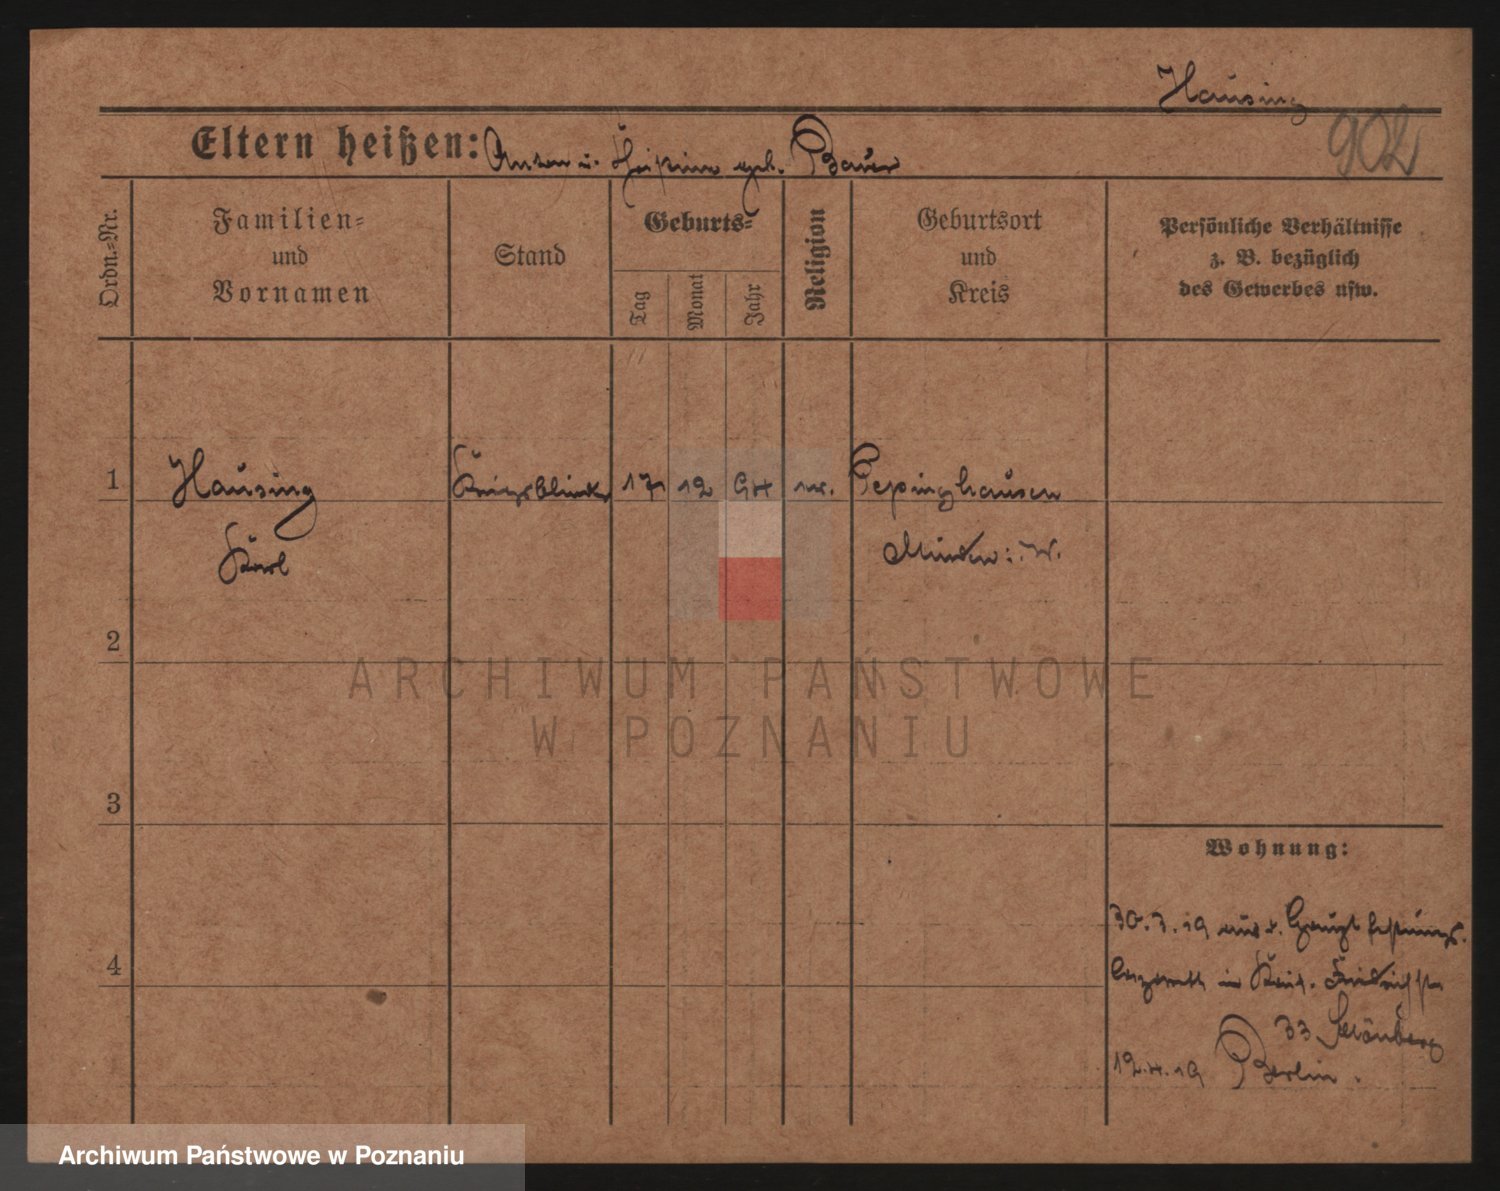 Hausing
902
Eltern heißen: Anton u. geb. Bauer
Ordn.-Nr.
Familien-
und
Vornamen
Stand
Geburts-
Tag
Monat
Jahr
Religion
Geburtsort
und
Kreis
Persönliche Verhältnisse
z. B. bezüglich
des Gewerbes usw.
1 Hausing Kriegsblinder 17 12 94
Karl Minden i. W.
2
3
4
Wohnung:
30.3.19 aus d. Hauptfestungs-
lazarett in Kais. Friedrichstr
33 Schönberg
12.4.19 Berlin.
ARCHIWUM PAŃSTWOWE
W POZNANIU
Archiwum Państwowe w Poznaniu